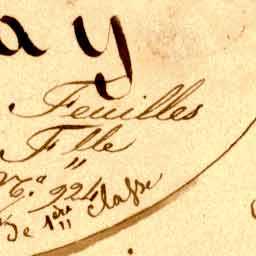 ay
Feuilles
Flle
N.º 924
De 1ère classe